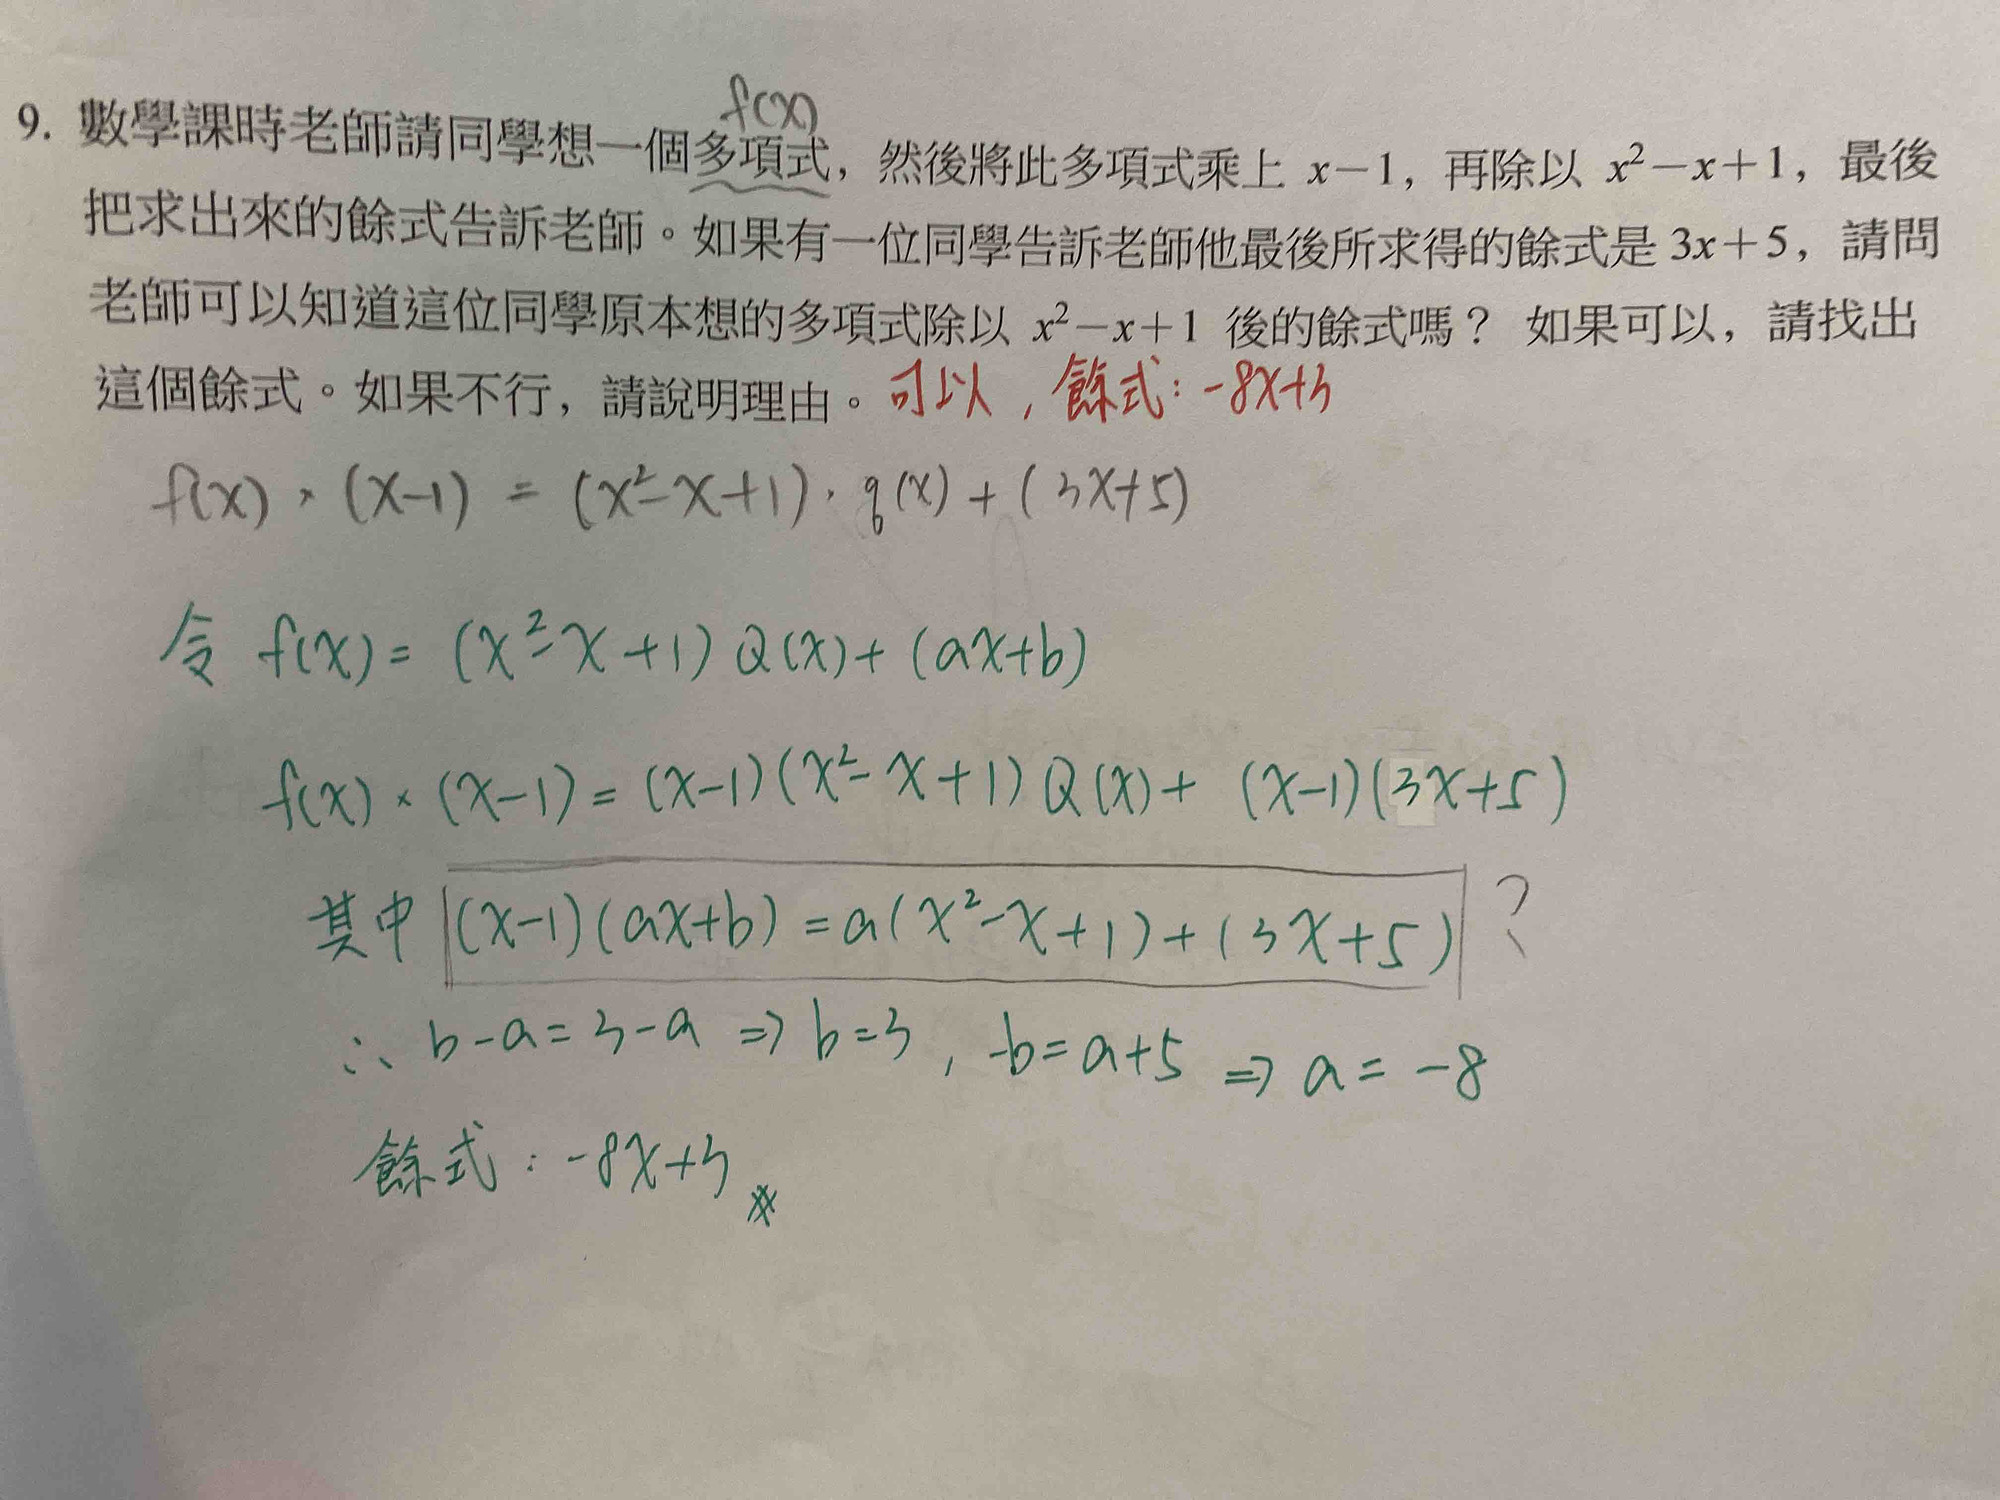 f(x)
9. 數學課時老師請同學想一個多項式，然後將此多項式乘上 x－1，再除以 x²－x＋1，最後
把求出來的餘式告訴老師。如果有一位同學告訴老師他最後所求得的餘式是 3x＋5，請問
老師可以知道這位同學原本想的多項式除以 x²－x＋1 後的餘式嗎？ 如果可以，請找出
這個餘式。如果不行，請說明理由。可以，餘式：-8x+3
f(x)·(x-1) = (x²-x+1)·q(x)+(3x+5)
令 f(x)= (x²-x+1)Q(x)+(ax+b)
f(x)×(x-1)=(x-1)(x²-x+1)Q(x)+(x-1)(3x+5)
其中 (x-1)(ax+b)=a(x²-x+1)+(3x+5) ?
∴ b-a=3-a ⇒ b=3, -b=a+5 ⇒ a=-8
餘式：-8x+3 #